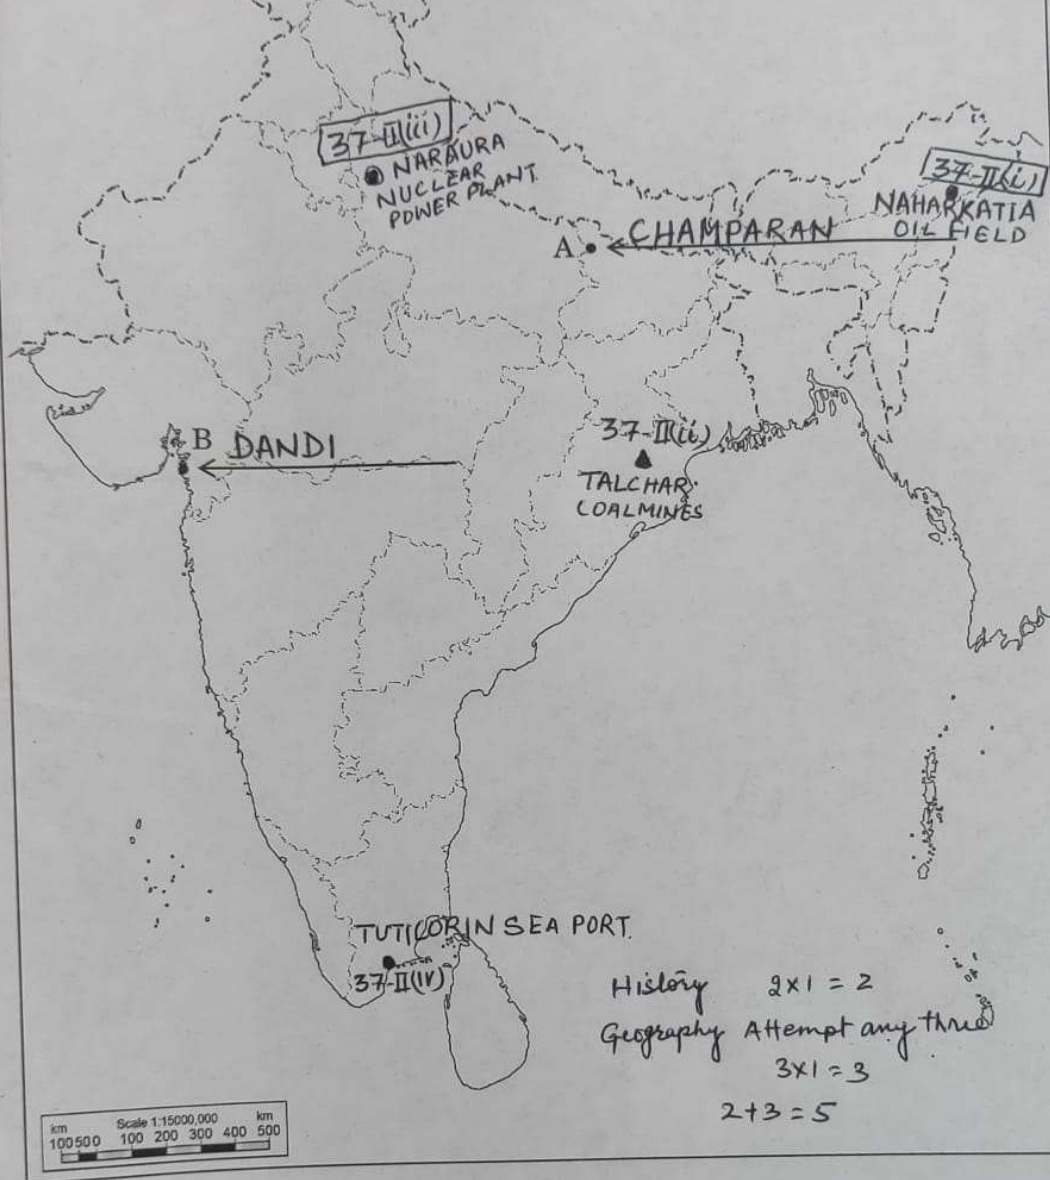 37-II(iii)
NARAURA
NUCLEAR
POWER PLANT
37-II(i)
NAHARKATIA
OIL FIELD
A CHAMPARAN
B DANDI
37-II(ii)
TALCHAR
COALMINES
TUTICORIN SEA PORT
37-II(IV)
History 2x1 = 2
Geography Attempt any three
3x1 = 3
2+3 = 5
Scale 1:15000,000
km km
100 50 0 100 200 300 400 500